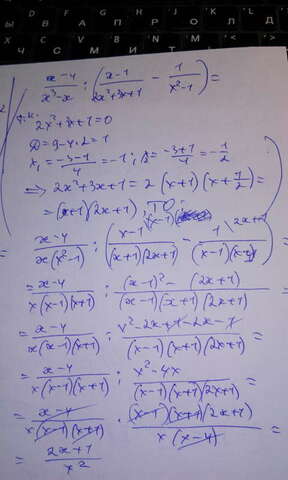 ы В А П Р О Л Д
Ч С М И Т
(x-4)/(x³-x) : ((x-1)/(2x²+3x+1) - 1/(x²-1)) =
т.к.
2x²+3x+1=0
D=9-4·2=1
x₁ = (-3-1)/4 = -1; = (-3+1)/4 = -1/2
⇒ 2x²+3x+1 = 2(x+1)(x+1/2) =
= (x+1)(2x+1), ТО:
= (x-4)/(x(x²-1)) : ((x-1)\(x-1)/((x+1)(2x+1)) - 1\2x+1/((x-1)(x+1))) =
= (x-4)/(x(x-1)(x+1)) : ((x-1)² - (2x+1))/((x-1)(x+1)(2x+1)) =
= (x-4)/(x(x-1)(x+1)) : (x²-2x+1-2x-1)/((x-1)(x+1)(2x+1)) =
= (x-4)/(x(x-1)(x+1)) : (x²-4x)/((x-1)(x+1)(2x+1)) =
= (x-4)/(x(x-1)(x+1)) · ((x-1)(x+1)(2x+1))/(x(x-4)) =
= (2x+1)/x²